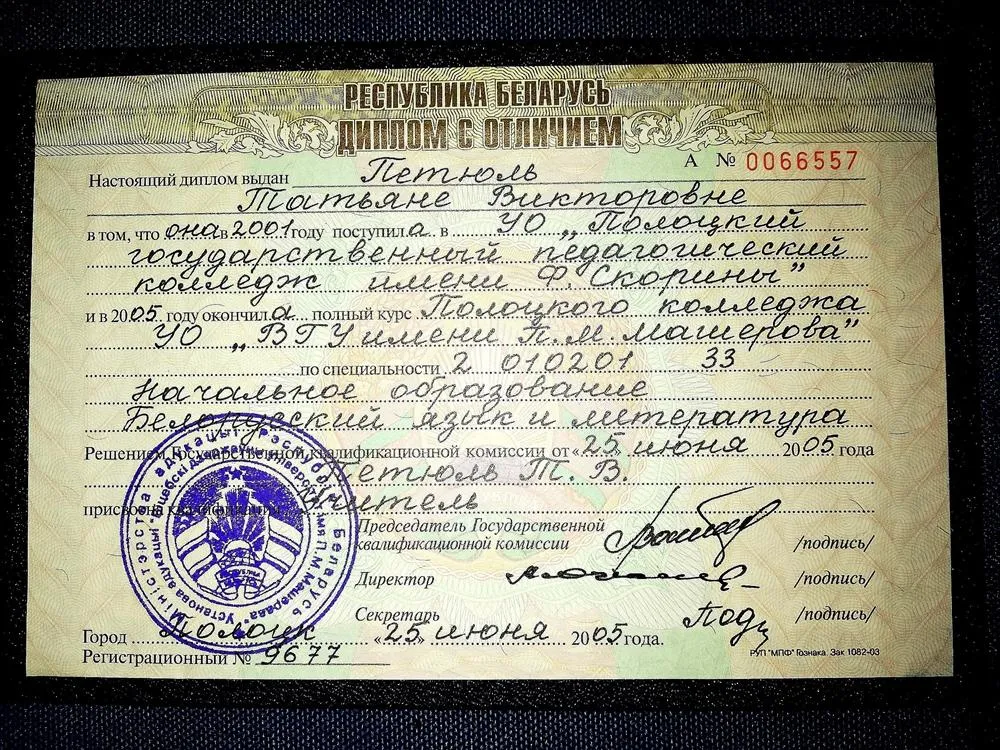 РЕСПУБЛИКА БЕЛАРУСЬ
ДИПЛОМ С ОТЛИЧИЕМ
А № 0066557
Настоящий диплом выдан Петюль
Татьяне Викторовне
в том, что она в 2001 году поступила в УО „Полоцкий
государственный педагогический
колледж имени Ф. Скорины"
и в 2005 году окончила полный курс Полоцкого колледжа
УО „ВГУ имени П.М. Машерова"
по специальности 2 01 02 01 33
Начальное образование
Белорусский язык и литература
Решением Государственной квалификационной комиссии от «25» июня 2005 года
Петюль Т. В.
присвоена квалификация учитель
Председатель Государственной
квалификационной комиссии /подпись/
Директор /подпись/
Секретарь /подпись/
Город Полоцк «25» июня 2005 года.
Регистрационный № 9677
РУП "МПФ" Гознака. Зак 1082-03
Міністэрства адукацыі Рэспублікі Беларусь
Установа адукацыі "Віцебскі дзяржаўны ўніверсітэт імя П.М. Машэрава"